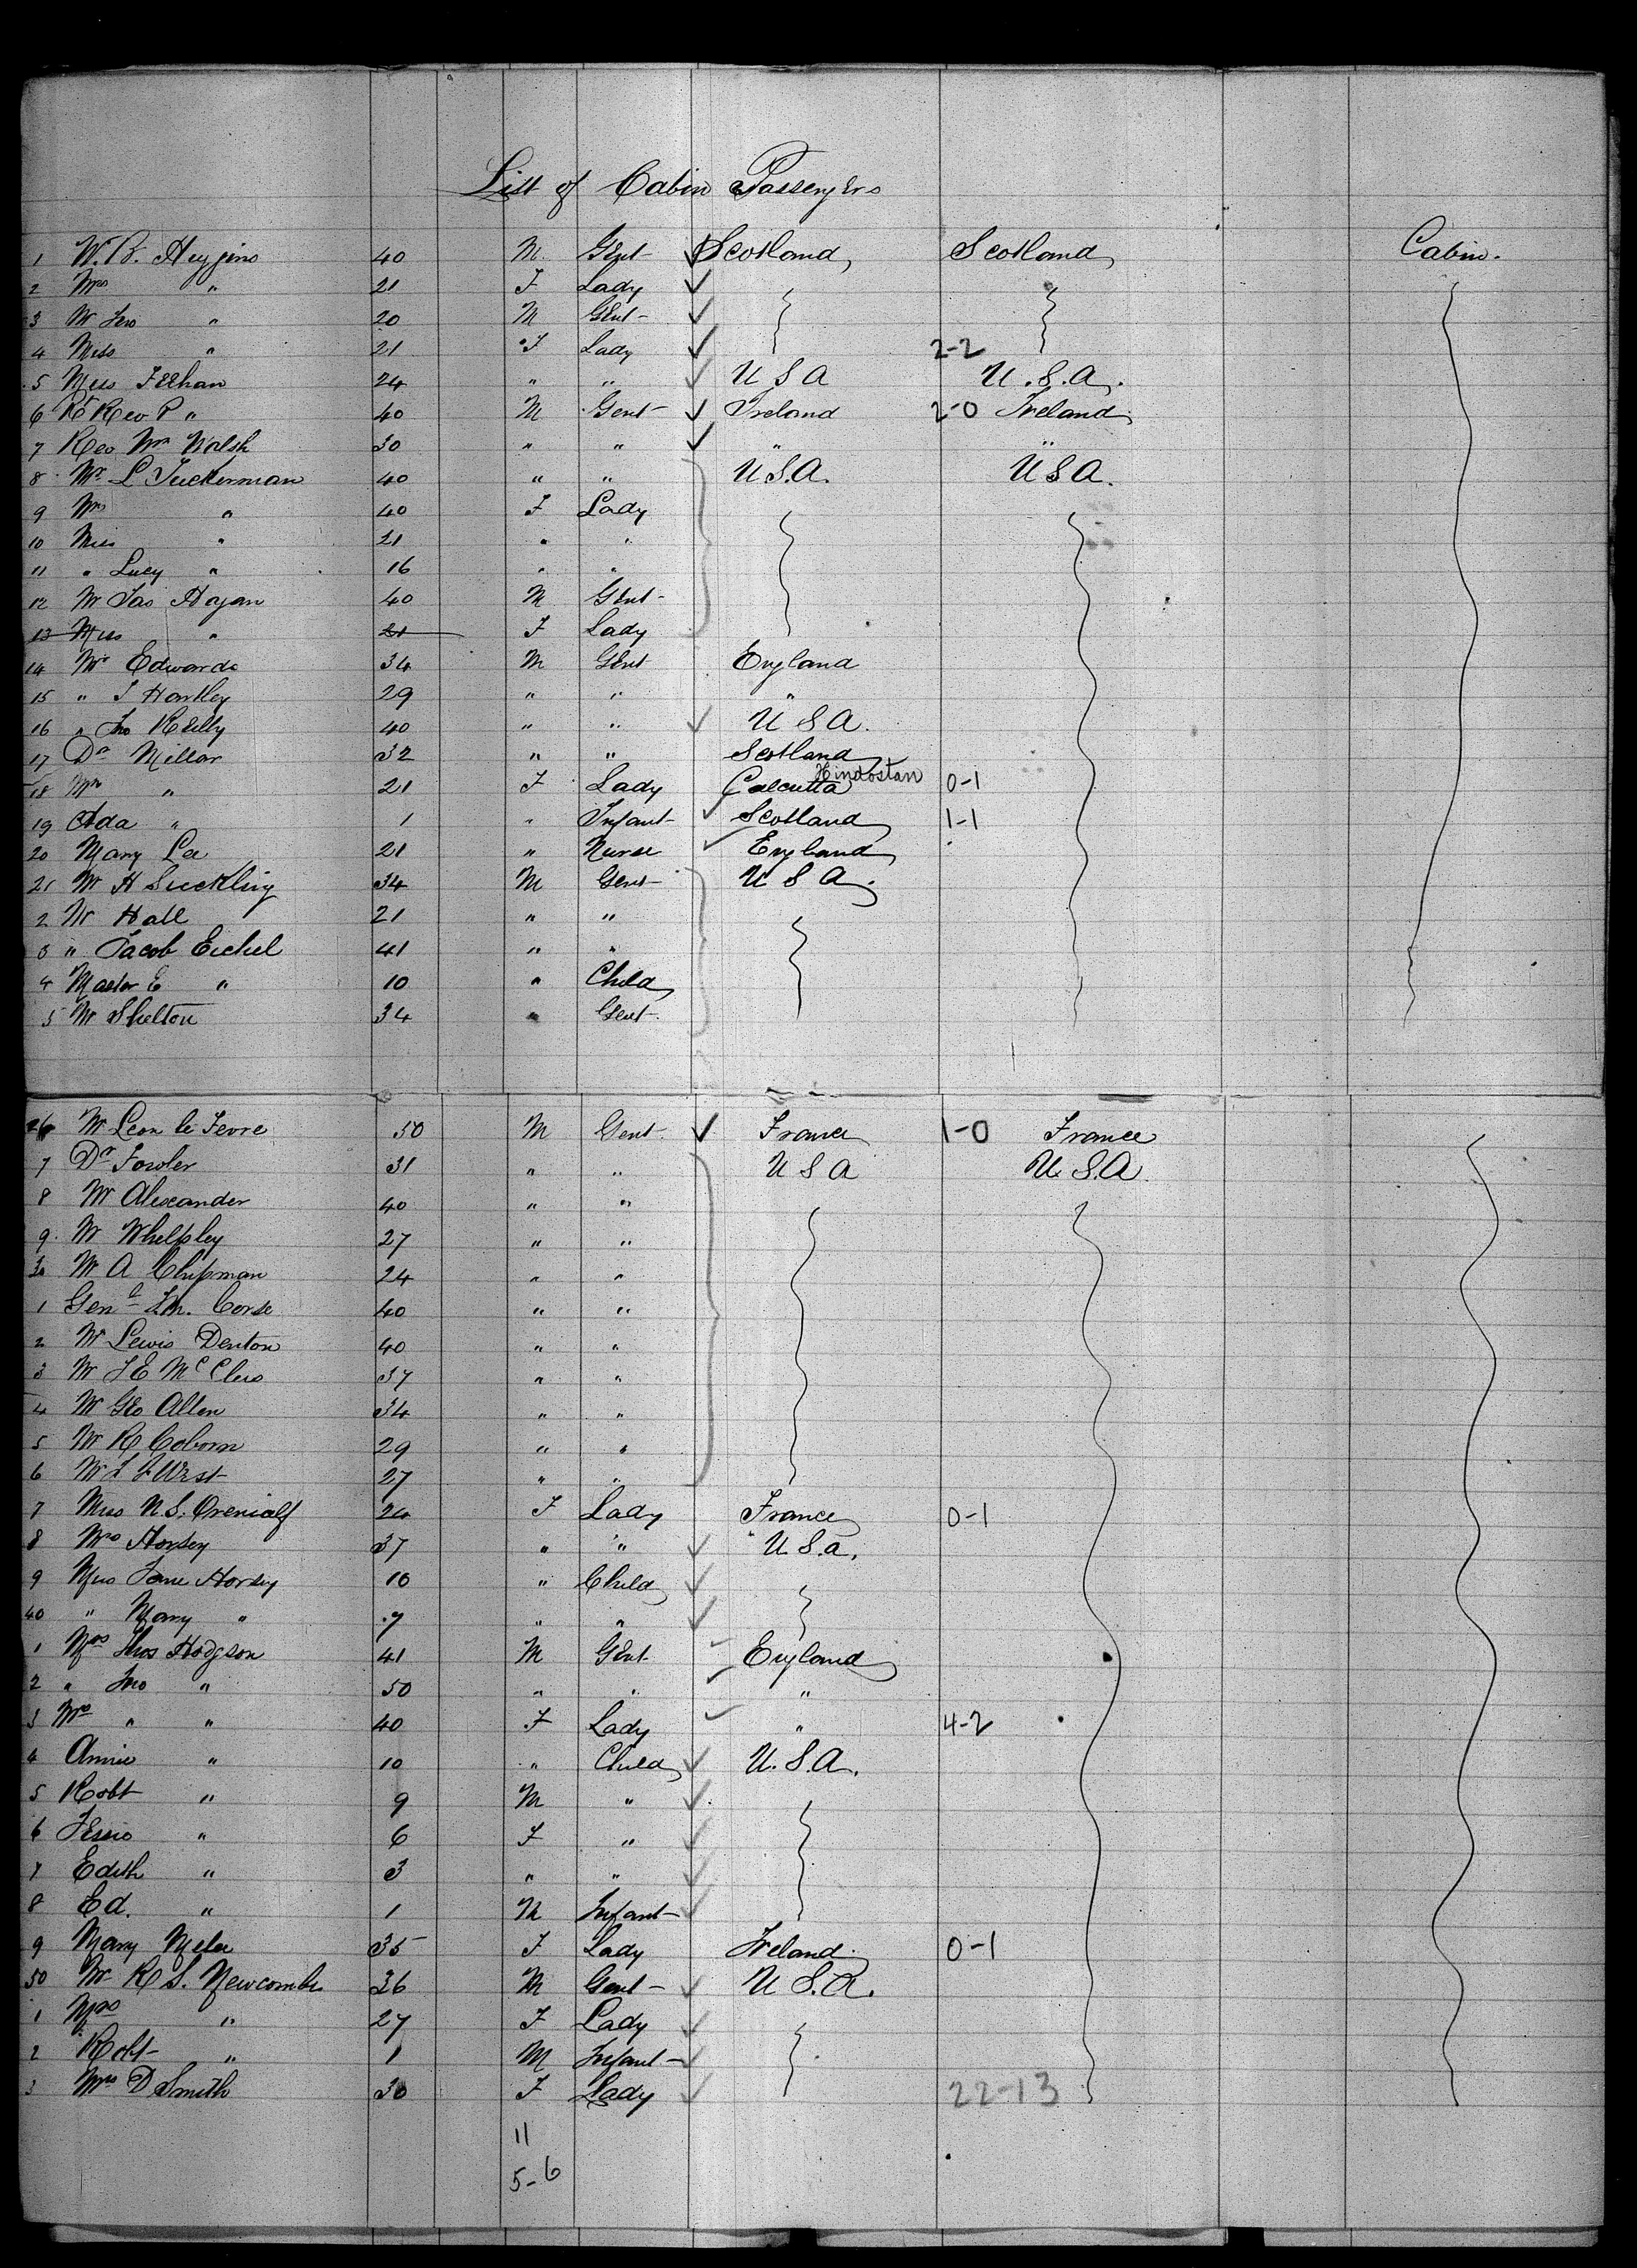 List of Cabin Passengers
1 W. B. Huggins 40 M. Gent Scotland Scotland Cabin.
2 Mrs " 21 F Lady
3 Mr Jno " 20 M Gent
4 Miss " 21 F Lady 2-2
5 Miss Feehan 24 " " U S A U.S.A.
6 Rt Rev P " 40 M Gent Ireland 2-0 Ireland
7 Rev Mr Walsh 30 " " " "
8 Mr L Tuckerman 40 " " U.S.A. U S A.
9 Mrs " 40 F Lady
10 Miss " 21 " "
11 " Lucy " 16 " "
12 Mr Jas Hogan 40 M Gent
13 Miss " 21 F Lady
14 Mr Edwards 34 M Gent England
15 " J Hartley 29 " " "
16 " Jno Reilly 40 " " U S A.
17 Dr Millar 32 " " Scotland
18 Mrs " 21 F Lady Calcutta Hindostan 0-1
19 Ada " 1 " Infant Scotland 1-1
20 Mary Lee 21 " Nurse England
21 Mr H Suckling 34 M Gent U S A.
2 Mr Hall 21 " "
3 " Jacob Eichel 41 " "
4 Master E " 10 " Child
5 Mr Shelton 34 " Gent
26 Mr Leon le Fevre 50 M Gent France 1-0 France
7 Dr Fowler 31 " " U S A U.S.A.
8 Mr Alexander 40 " "
9 Mr Whelpley 27 " "
30 Mr A Chipman 24 " "
1 Genl J.M. Corse 40 " "
2 Mr Lewis Denton 40 " "
3 Mr J E Mc 37 " "
4 Mr Geo Allen 34 " "
5 Mr R Coborn 29 " "
6 Mr J F West 27 " "
7 Miss N. S. 24 F Lady France 0-1
8 Mrs Horsey 37 " " U.S.a.
9 Miss Jane Horsey 10 " Child
40 " Mary " 7 " "
1 Thos Hodgson 41 M Gent England
2 " Jno " 50 " " "
3 Mrs " " 40 F Lady " 4-2
4 Annie " 10 " Child U.S.A.
5 Robt " 9 M "
6 Jessie " 6 F "
7 Edith " 3 " "
8 Ed. " 1 M Infant
9 Mary 35 F Lady Ireland 0-1
50 Mr R S. Newcombe 36 M Gent U S.A.
1 Mrs " 27 F Lady
2 Robt " 1 M Infant
3 Mrs D Smith 30 F Lady 22-13
11
5-6